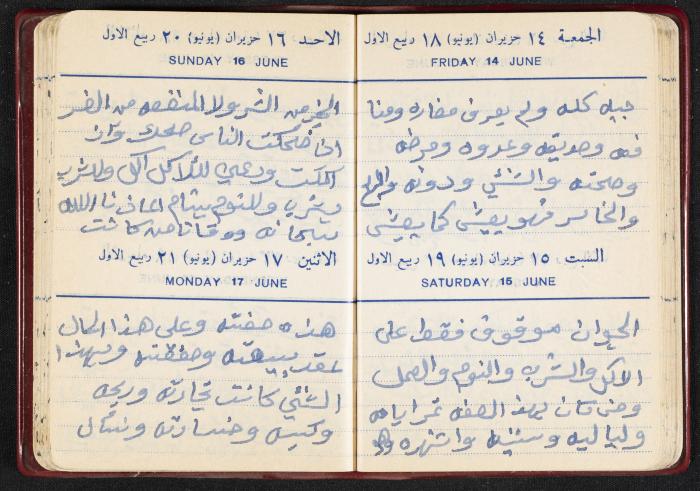 الجمعة ١٤ حزيران (يونيو) ١٨ ربيع الاول
FRIDAY 14 JUNE
كله ولم يعرف مضاره ومنا
فعه وصديقه وعدوه ومرضه
وصحته والشئي ودونه والمر
والخاسر فهو يعيش كما يعيش
السبت ١٥ حزيران (يونيو) ١٩ ربيع الاول
SATURDAY 15 JUNE
الحيوان موقوف فقط على
الاكل والشرب والنوم والعمل
ومن كان بهذ الصفه تمر ايامه
ولياليه وسنينه واشهره وهو
الاحد ١٦ حزيران (يونيو) ٢٠ ربيع الاول
SUNDAY 16 JUNE
الخير من الشر ولا المنفعه من الضر
اذا ضحكت الناس ضحك وان
ودعي للاكل اكل وللشرب
يشرب وللنوم ينام اعاذنا الله
سبحانه ووقانا من كانت
الاثنين ١٧ حزيران (يونيو) ٢١ ربيع الاول
MONDAY 17 JUNE
هذه صفته وعلى هذا الحال
عقد بيعته وصفقته وبهذا
الشئي كانت تجارته وربحه
وكسبه وخسارته ونسأل